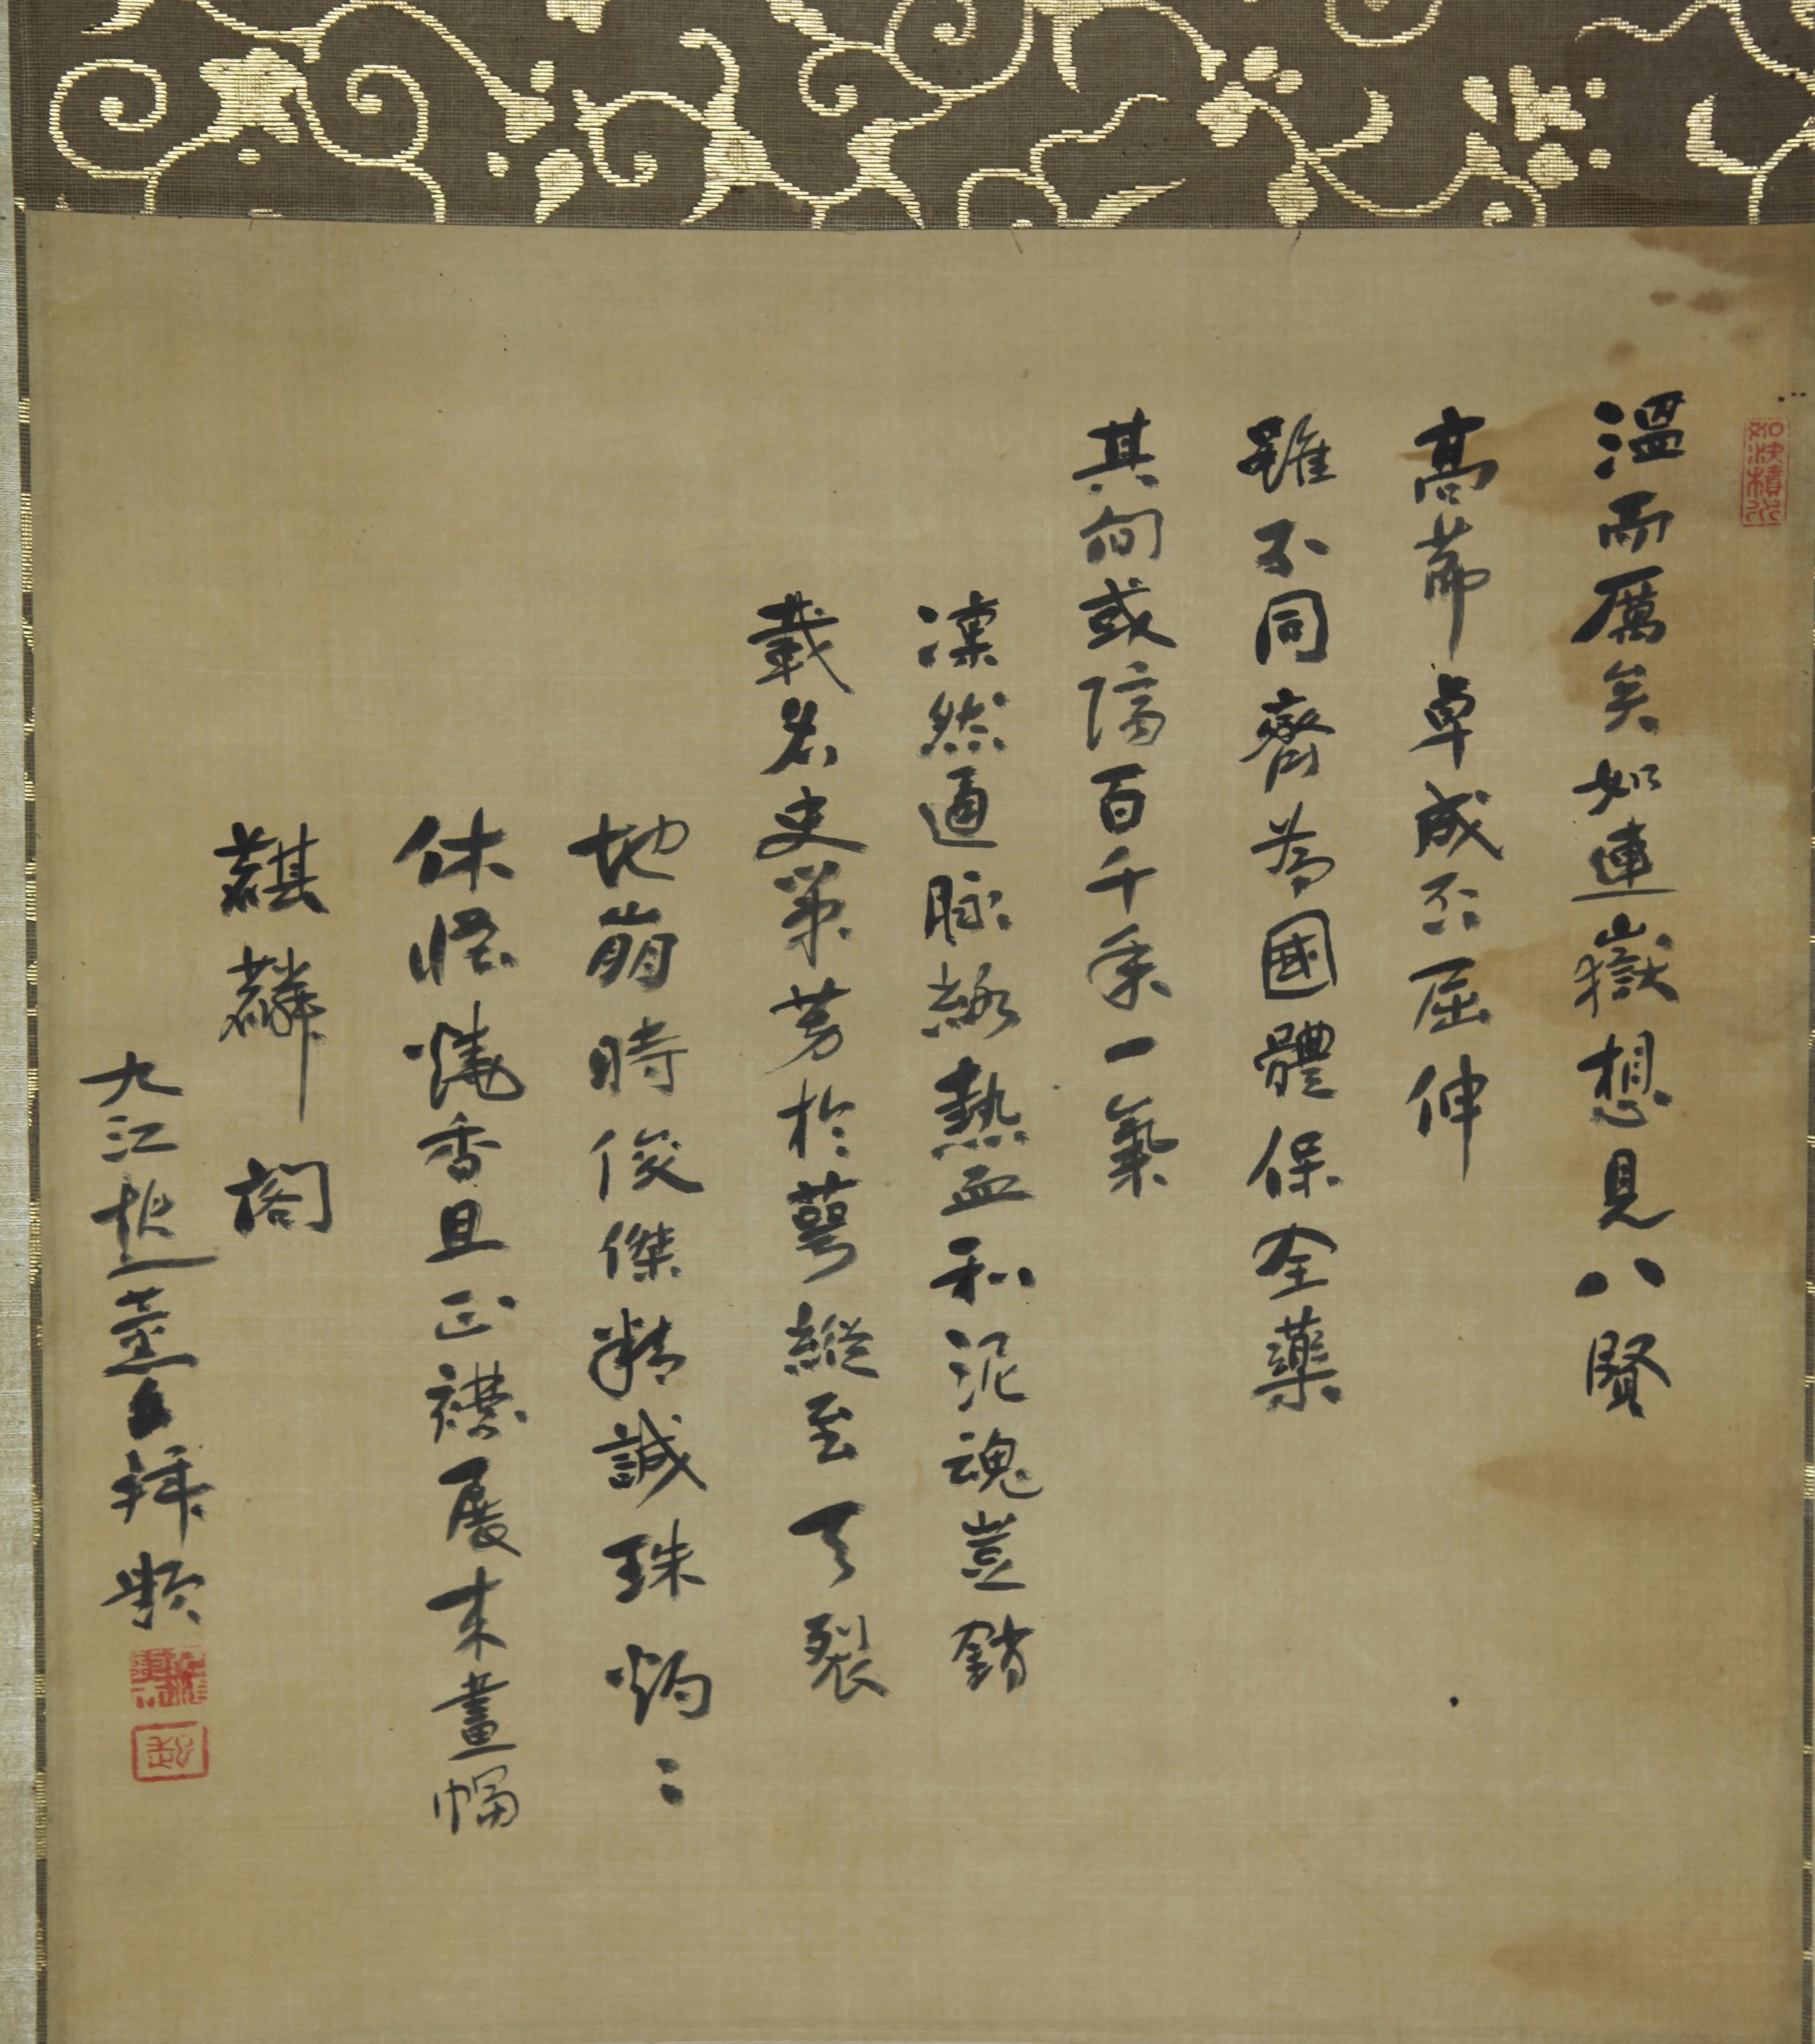 溫而厲矣如連嶽想見八賢
高節卓成不屈伸
雖不同齊為國體保全藥
其向或隔百千季一氣
凜然通脉絡熱血和泥魂豈銷
載名史策芳於萼縱至天裂
地崩時俊傑精誠珠炳〻
休怪燒香且正襟展來畫幅
麒麟閣
九江
拜題